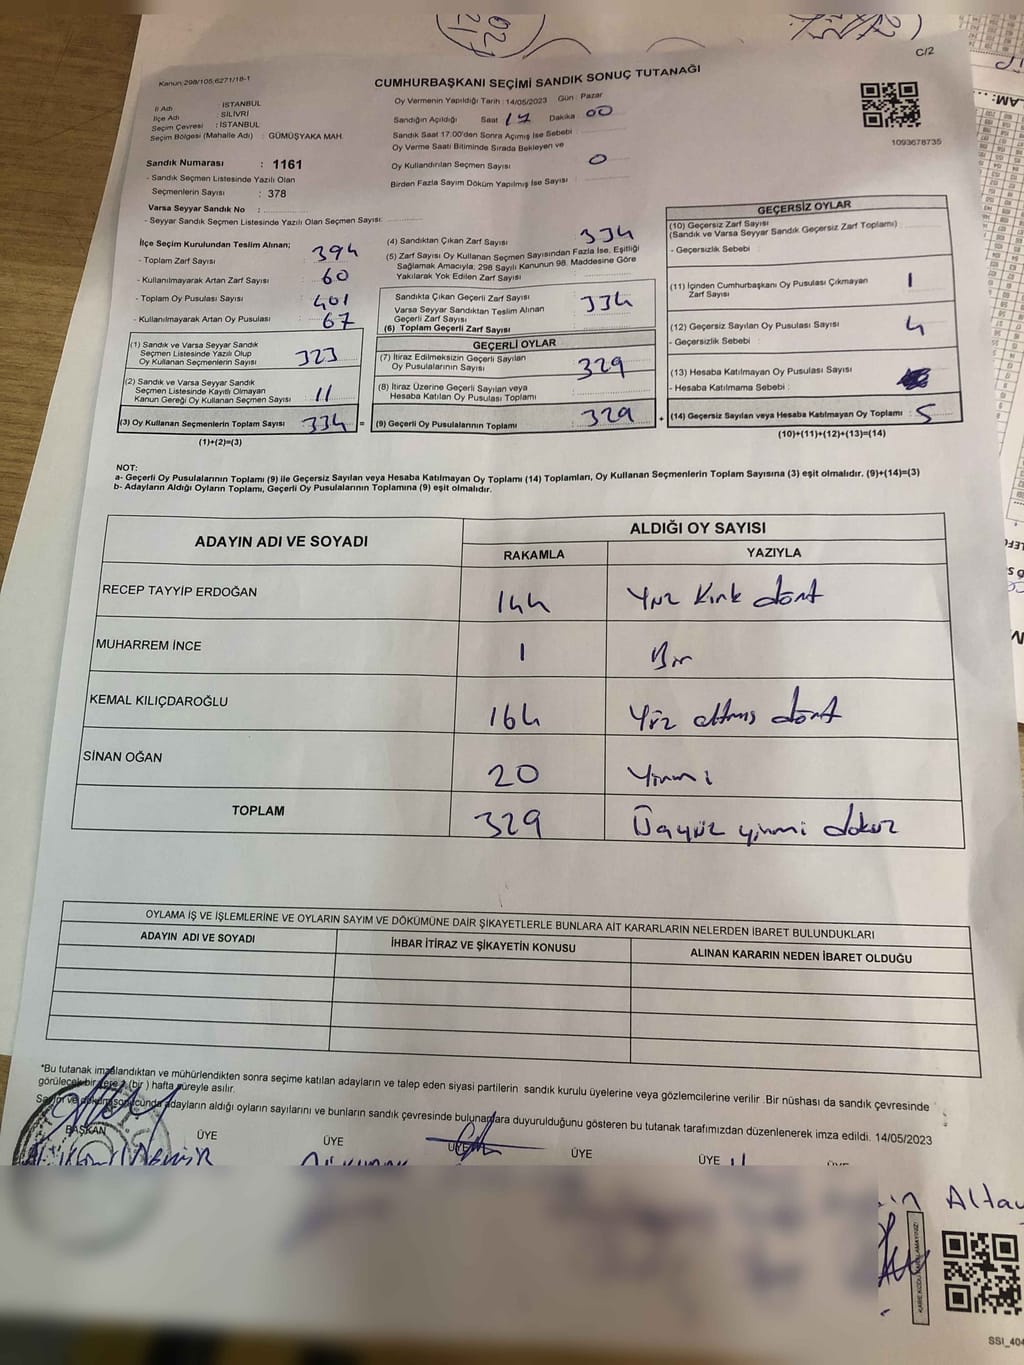 C/2
Kanun 298/105,6271/18-1
CUMHURBAŞKANI SEÇİMİ SANDIK SONUÇ TUTANAĞI
İl Adı : İSTANBUL
İlçe Adı : SİLİVRİ
Seçim Çevresi : İSTANBUL
Seçim Bölgesi (Mahalle Adı) : GÜMÜŞYAKA MAH.
Oy Vermenin Yapıldığı Tarih : 14/05/2023 Gün : Pazar
Sandığın Açıldığı Saat 17 Dakika 00
Sandık Saat 17:00'den Sonra Açılmış İse Sebebi :
Oy Verme Saati Bitiminde Sırada Bekleyen ve
Oy Kullandırılan Seçmen Sayısı : 0
Birden Fazla Sayım Döküm Yapılmış İse Sayısı :
1093678735
Sandık Numarası : 1161
- Sandık Seçmen Listesinde Yazılı Olan
Seçmenlerin Sayısı : 378
Varsa Seyyar Sandık No :
- Seyyar Sandık Seçmen Listesinde Yazılı Olan Seçmen Sayısı:
İlçe Seçim Kurulundan Teslim Alınan;
- Toplam Zarf Sayısı : 394
- Kullanılmayarak Artan Zarf Sayısı : 60
- Toplam Oy Pusulası Sayısı : 401
- Kullanılmayarak Artan Oy Pusulası : 67
(1) Sandık ve Varsa Seyyar Sandık
Seçmen Listesinde Yazılı Olup
Oy Kullanan Seçmenlerin Sayısı : 323
(2) Sandık ve Varsa Seyyar Sandık
Seçmen Listesinde Kayıtlı Olmayan
Kanun Gereği Oy Kullanan Seçmen Sayısı : 11
(3) Oy Kullanan Seçmenlerin Toplam Sayısı : 334 =
(1)+(2)=(3)
(4) Sandıktan Çıkan Zarf Sayısı : 334
(5) Zarf Sayısı Oy Kullanan Seçmen Sayısından Fazla İse, Eşitliği
Sağlamak Amacıyla; 298 Sayılı Kanunun 98. Maddesine Göre
Yakılarak Yok Edilen Zarf Sayısı :
Sandıkta Çıkan Geçerli Zarf Sayısı : 334
Varsa Seyyar Sandıktan Teslim Alınan
Geçerli Zarf Sayısı
(6) Toplam Geçerli Zarf Sayısı
GEÇERLİ OYLAR
(7) İtiraz Edilmeksizin Geçerli Sayılan
Oy Pusulalarının Sayısı : 329
(8) İtiraz Üzerine Geçerli Sayılan veya
Hesaba Katılan Oy Pusulası Toplamı :
(9) Geçerli Oy Pusulalarının Toplamı : 329 +
GEÇERSİZ OYLAR
(10) Geçersiz Zarf Sayısı
(Sandık ve Varsa Seyyar Sandık Geçersiz Zarf Toplamı) :
- Geçersizlik Sebebi :
(11) İçinden Cumhurbaşkanı Oy Pusulası Çıkmayan
Zarf Sayısı : 1
(12) Geçersiz Sayılan Oy Pusulası Sayısı : 4
- Geçersizlik Sebebi :
(13) Hesaba Katılmayan Oy Pusulası Sayısı :
- Hesaba Katılmama Sebebi :
(14) Geçersiz Sayılan veya Hesaba Katılmayan Oy Toplamı : 5
(10)+(11)+(12)+(13)=(14)
NOT:
a- Geçerli Oy Pusulalarının Toplamı (9) ile Geçersiz Sayılan veya Hesaba Katılmayan Oy Toplamı (14) Toplamları, Oy Kullanan Seçmenlerin Toplam Sayısına (3) eşit olmalıdır. (9)+(14)=(3)
b- Adayların Aldığı Oyların Toplamı, Geçerli Oy Pusulalarının Toplamına (9) eşit olmalıdır.
ADAYIN ADI VE SOYADI ALDIĞI OY SAYISI
RAKAMLA YAZIYLA
RECEP TAYYİP ERDOĞAN 144 Yüz Kırk dört
MUHARREM İNCE 1 Bir
KEMAL KILIÇDAROĞLU 164 Yüz altmış dört
SİNAN OĞAN 20 Yirmi
TOPLAM 329 Üçyüz yirmi dokuz
OYLAMA İŞ VE İŞLEMLERİNE VE OYLARIN SAYIM VE DÖKÜMÜNE DAİR ŞİKAYETLERLE BUNLARA AİT KARARLARIN NELERDEN İBARET BULUNDUKLARI
ADAYIN ADI VE SOYADI İHBAR İTİRAZ VE ŞİKAYETİN KONUSU ALINAN KARARIN NEDEN İBARET OLDUĞU
*Bu tutanak imzalandıktan ve mühürlendikten sonra seçime katılan adayların ve talep eden siyasi partilerin sandık kurulu üyelerine veya gözlemcilerine verilir .Bir nüshası da sandık çevresinde
görülecek bir yere 1 (bir ) hafta süreyle asılır.
Sayım ve döküm sonucunda adayların aldığı oyların sayılarını ve bunların sandık çevresinde bulunanlara duyurulduğunu gösteren bu tutanak tarafımızdan düzenlenerek imza edildi. 14/05/2023
BAŞKAN ÜYE ÜYE ÜYE ÜYE ÜYE ÜYE
SSI_404